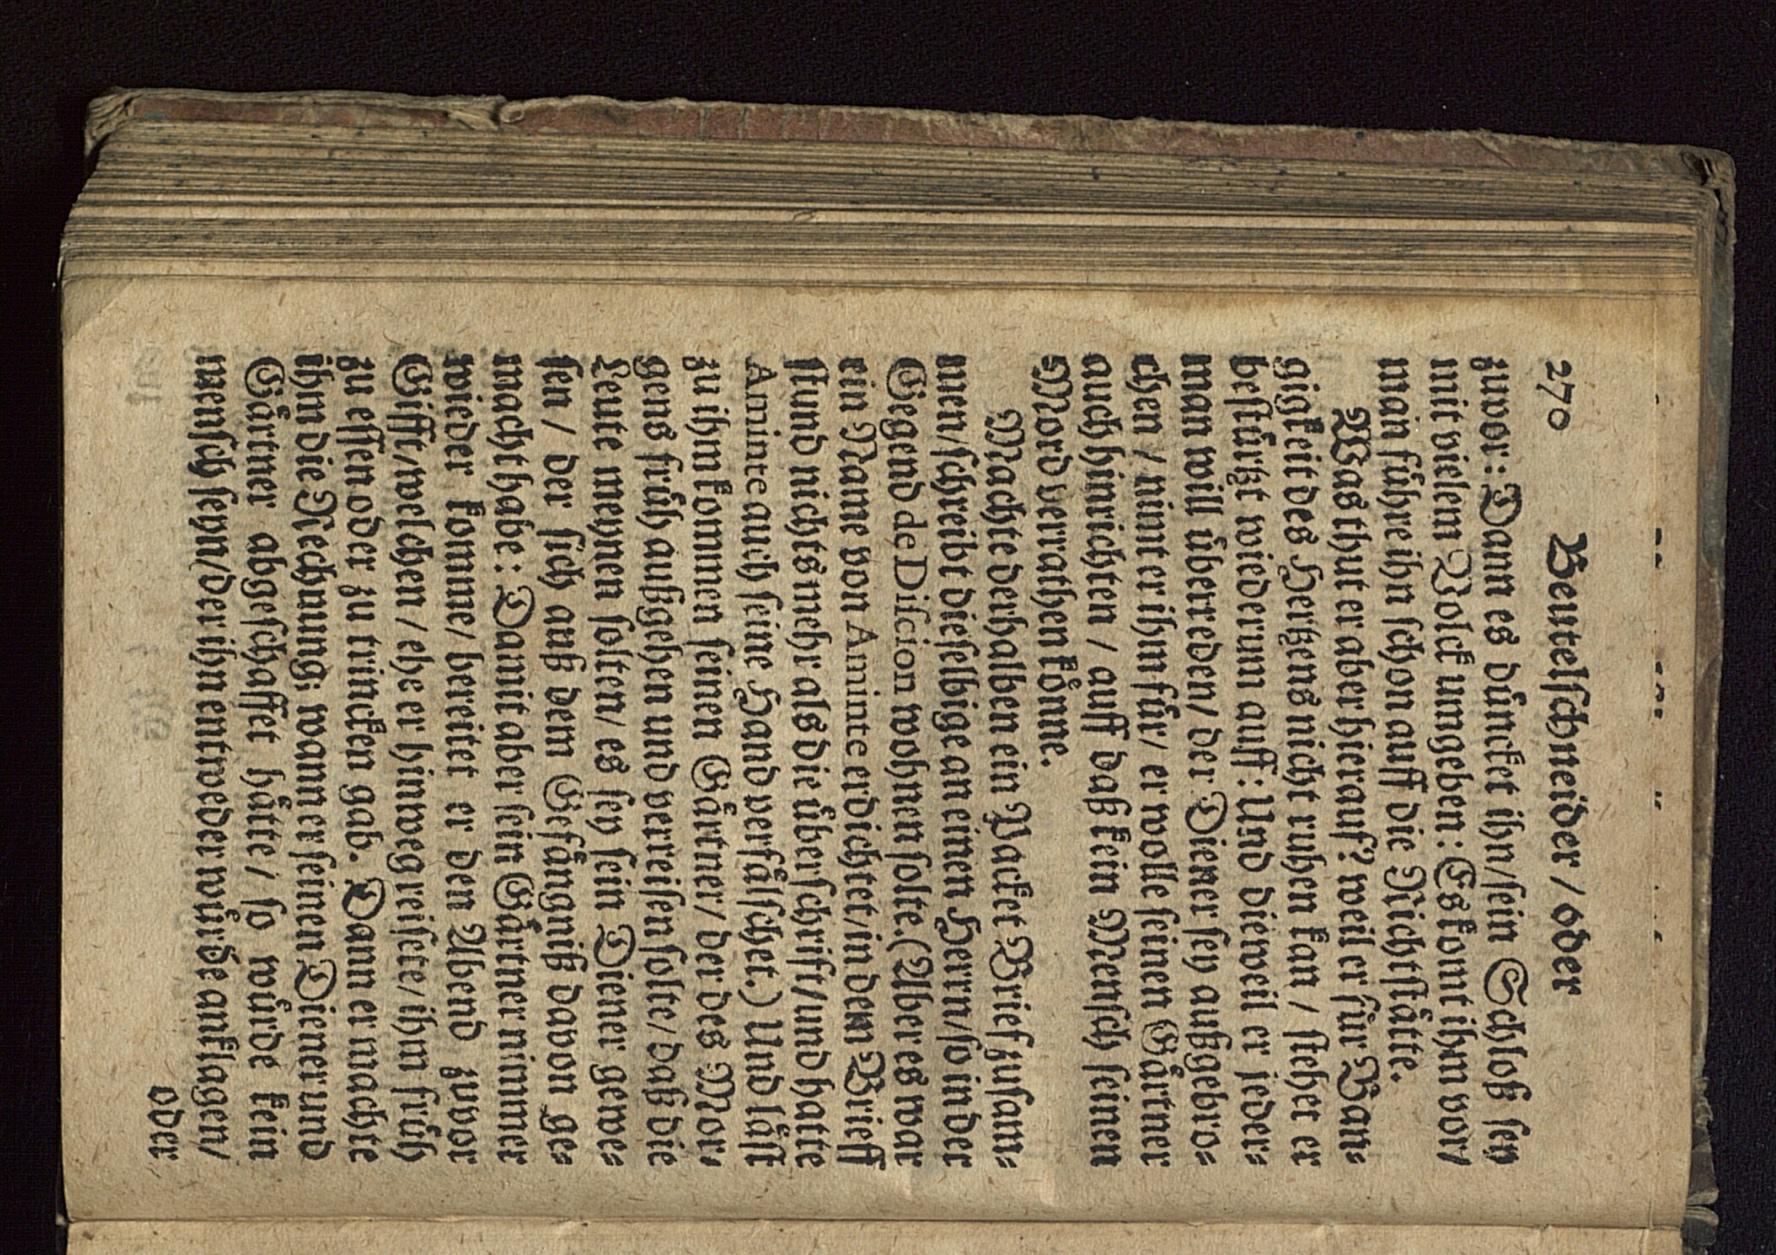 270 Beutelschneider / oder
zuvor: Dann es důncket ihn / sein Schloß sey
mit vielem Volck umgeben: Es komt ihm vor /
man führe ihn schon auff die Richtstätte.
Was thut er aber hierauf? weil er für Ban-
gigkeit des Hertzens nicht ruhen kan / stehet er
bestůrtzt wiederum auff: Und dieweil er jeder-
man will ůberreden / der Diener sey außgebro-
chen / nimt er ihm fůr / er wolle seinen Gärtner
auch hinrichten / auff daß kein Mensch seinen
Mord verrathen kőnne.
Machte derhalben ein Packet Brief zusam-
men / schreibt dieselbige an einen Herrn / so in der
Gegend de Discion wohnen solte. (Aber es war
ein Name von Aminte erdichtet / in dem Brieff
stund nichts mehr als die ůberschrift / und hatte
Aminte auch seine Hand verfälschet.) Und läst
zu ihm kommen seinen Gärtner / der des Mor-
gens frůh außgehen und verreisen solte / daß die
Leute meynen solten / es sey sein Diener gewe-
sen / der sich auß dem Gefängniß davon ge-
macht habe: Damit aber sein Gärtner nimmer
wieder komme / bereitet er den Abend zuvor
Gifft / welchen / ehe er hinweg reisete / ihm frůh
zu essen oder zu trincken gab. Dann er machte
ihm die Rechnung; wann er seinen Diener und
Gärtner abgeschaffet hätte / so wůrde kein
mensch seyn / der ihn entweder wůrde anklagen /
oder